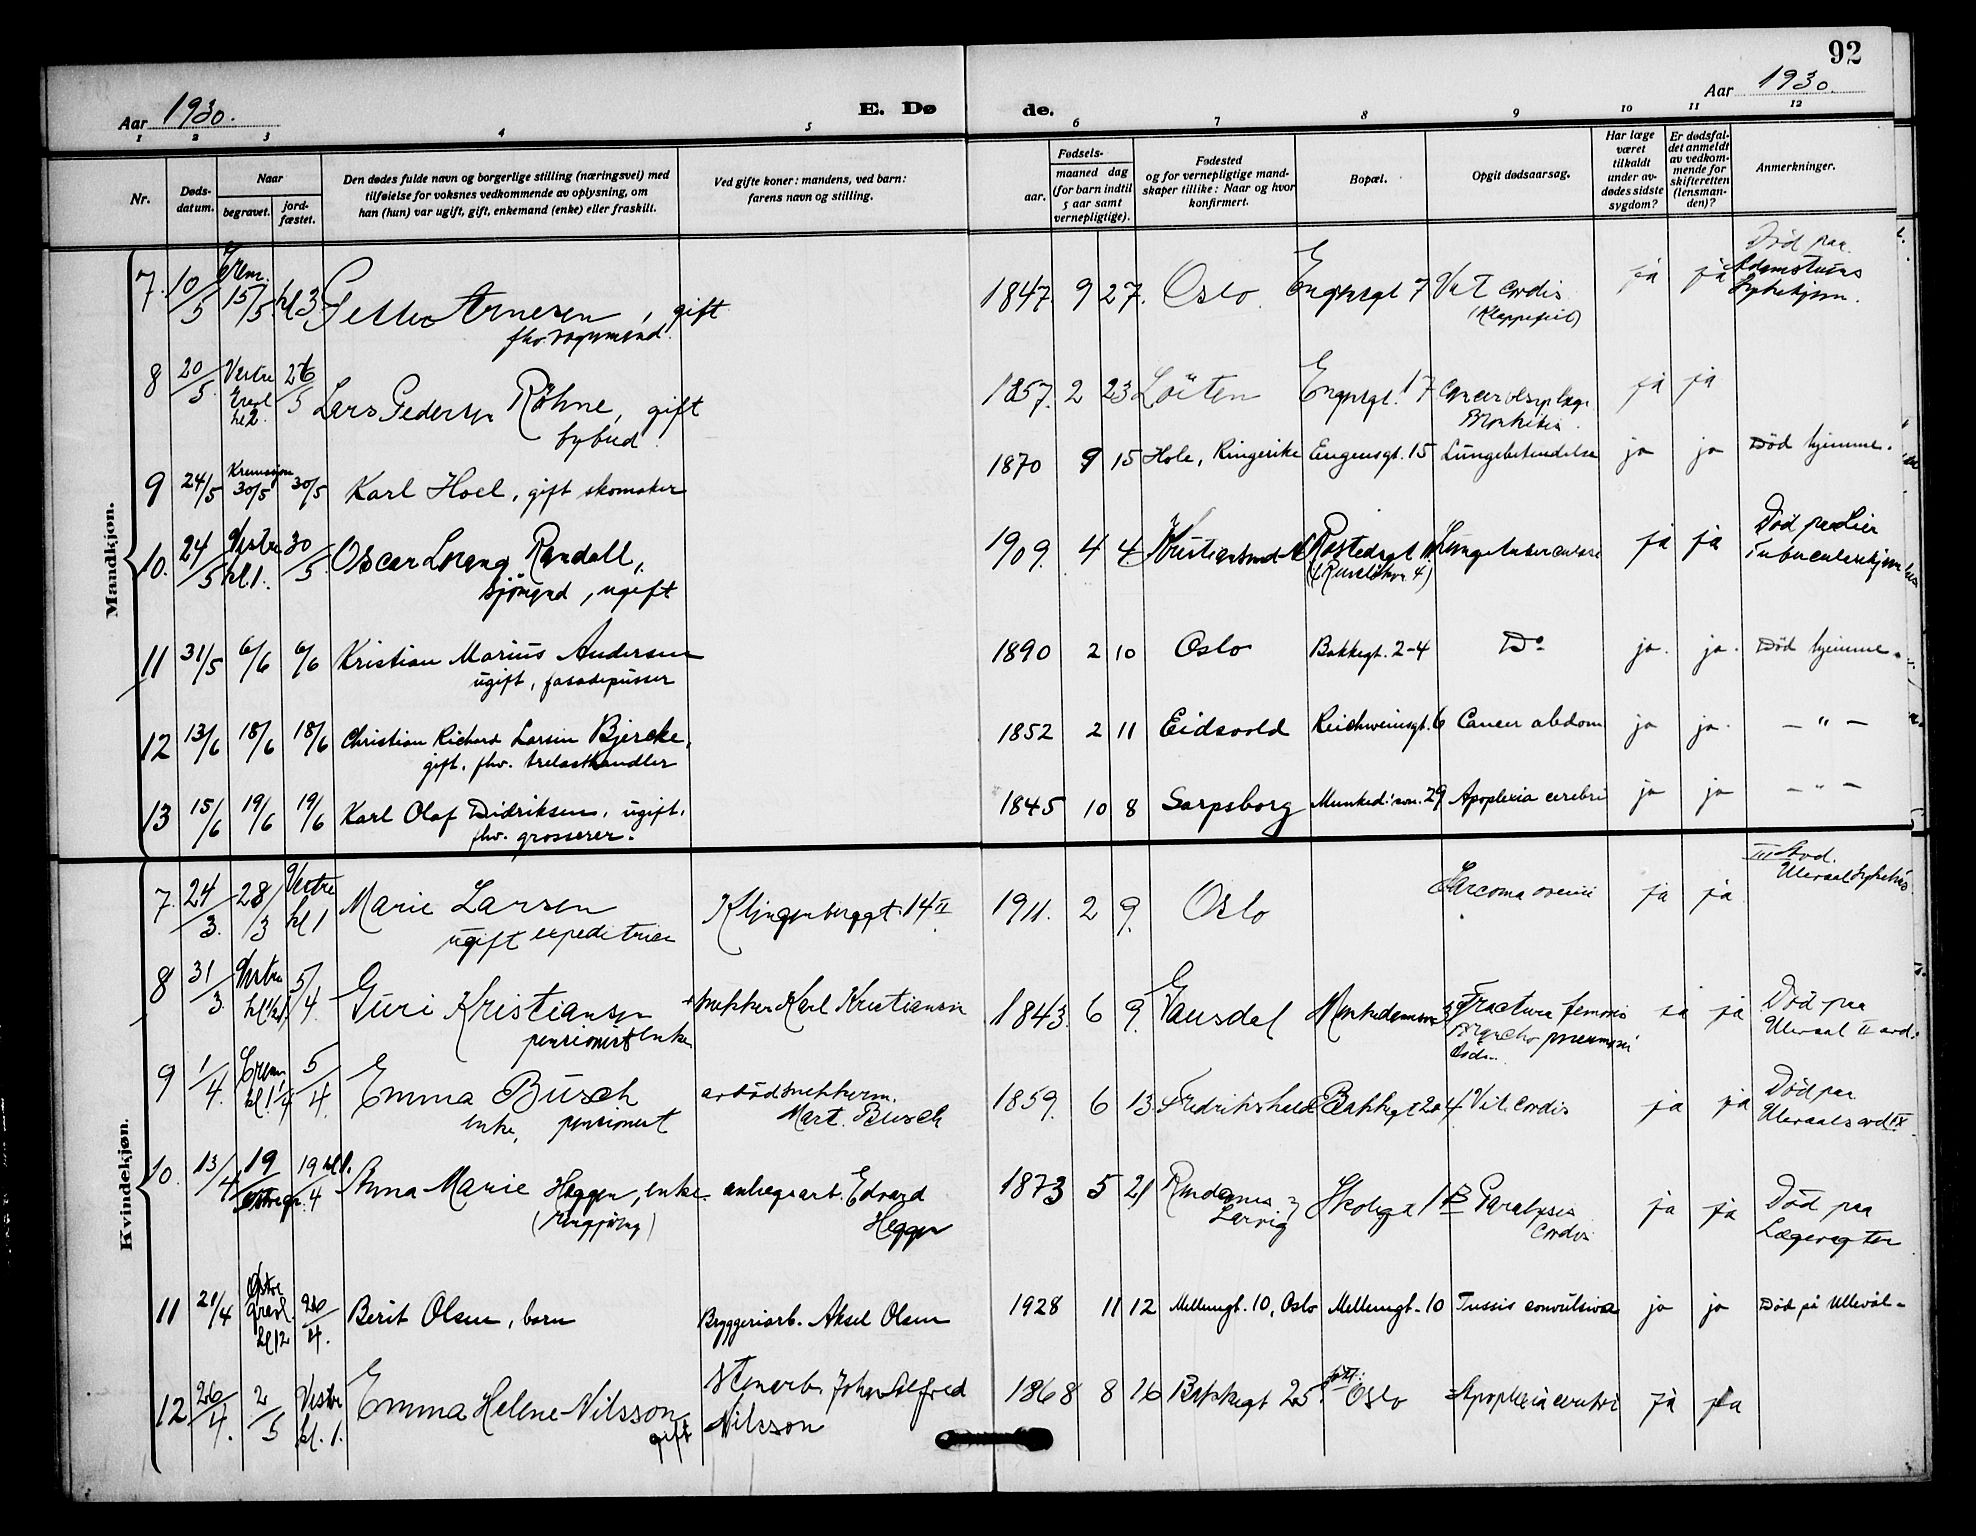 92
Aar 1930.
E. Dø de.
Aar 1930.
1 2 3 4 5 6 7 8 9 10 11 12
Nr.
Døds-
datum.
Naar
begravet.
jord-
fæstet.
Den dødes fulde navn og borgerlige stilling (næringsvei) med
tilføielse for voksnes vedkommende av oplysning, om
han (hun) var ugift, gift, enkemand (enke) eller fraskilt.
Ved gifte koner: mandens, ved barn:
farens navn og stilling.
Fødsels-
aar.
maaned dag
(for barn indtil
5 aar samt
vernepligtige).
Fødested
og for vernepligtige mand-
skaper tillike: Naar og hvor
konfirmert.
Bopæl.
Opgit dødsaarsag.
Har læge
været
tilkaldt
under av-
dødes sidste
sygdom?
Er dødsfal-
det anmeldt
av vedkom-
mende for
skifteretten
(lensman-
den)?
Anmerkninger.
Mandkjøn.
7. 10/5 Krem. 15/5 kl 3 Petter Arnesen, gift 1847. 9 27. Oslo Engensgt 7 Vit. cordis (Klappefeil) ja ja Død paa
fhv. vognmand.
8 20/5 Vestre Gravl kl 2. 26/5 Lars Pedersen Røhne, gift 1857. 2 23 Löiten Engensgt. 17 ja ja
bybud
9 24/5 Kremasjon 30/5 30/5 Karl Hoel, gift skomaker 1870 9 15 Hole, Ringerike Eugensgt. 15 Lungebetendelse ja ja Død hjemme.
10. 24/5 Vestre kl 1. 30/5 Oscar Lorang Randall, 1909. 4 4 Kristiansund N Lungetuberculose ja ja Død paa Lier
sjømand, ugift Tuberculosehjem
11 31/5 6/6 6/6 Kristian Marius Andersen 1890 2 10 Oslo Bakkegt. 2-4 Do ja. ja. Død hjemme.
ugift, fasadepusser
12 13/6 18/6 18/6 Christian Richard Larsen Bjercke, 1852 2 11 Eidsvold Reichweinsgt. 6 Cancer abdom ja ja. — " —
gift. fhv. trelasthandler
13 15/6 19/6 19/6 Karl Olaf Didriksen, ugift. 1845 10 8 Sarpsborg Munked.vn. 29 Apoplexia cerebri ja ja — " —
fhv. grosserer.
Kvindekjøn.
7. 24/3. 28/3 Vestre kl 1 Marie Larsen Klingenberggt. 14 II 1911. 2 9. Oslo Sarcoma ovarii ja ja III Avd. Ulevaal sykehus
ugift expeditrice
8 31/3 Vestre 5/4. Guri Kristiansen snekker Karl Kristiansen 1843. 6 9. Gausdal Munkedamsv 39 Fractura femoris ja ja Død paa
pensionist enke Broncho pneumoni Ulevaal II avd.
9 1/4. Crem. kl 1 5/4. Emma Busch avdød snekkerm. 1859. 6 13 Fredrikshald Bakkegt 2a4 Vit. cordis ja ja Død paa
enke, pensionist Mart. Busch Ulevaals avd IX
10. 13/4 19 19/4 kl 1. Anna Marie Heggen, enke anlægsarb. Edvard 1873 5 21 Larvig Skolegt 1 B Paralysis ja ja Død paa
Heggen Cordis Lægevagten
11 21/4 Østre gravl. kl 12 26/4. Berit Olsen, barn Bryggeriarb. Aksel Olsen 1928 11 12 Mellemgt. 10, Oslo Mellemgt. 10 Tussis convulsiva ja ja Død på Ullevål.
12 26/4. 2/5 Vestre kl. 1. Emma Helene Nilsson Stenarb. Johan Alfred 1868 8 26 Bakkegt 25. født: Oslo Apoplexia cerebri ja ja
gift Nilsson